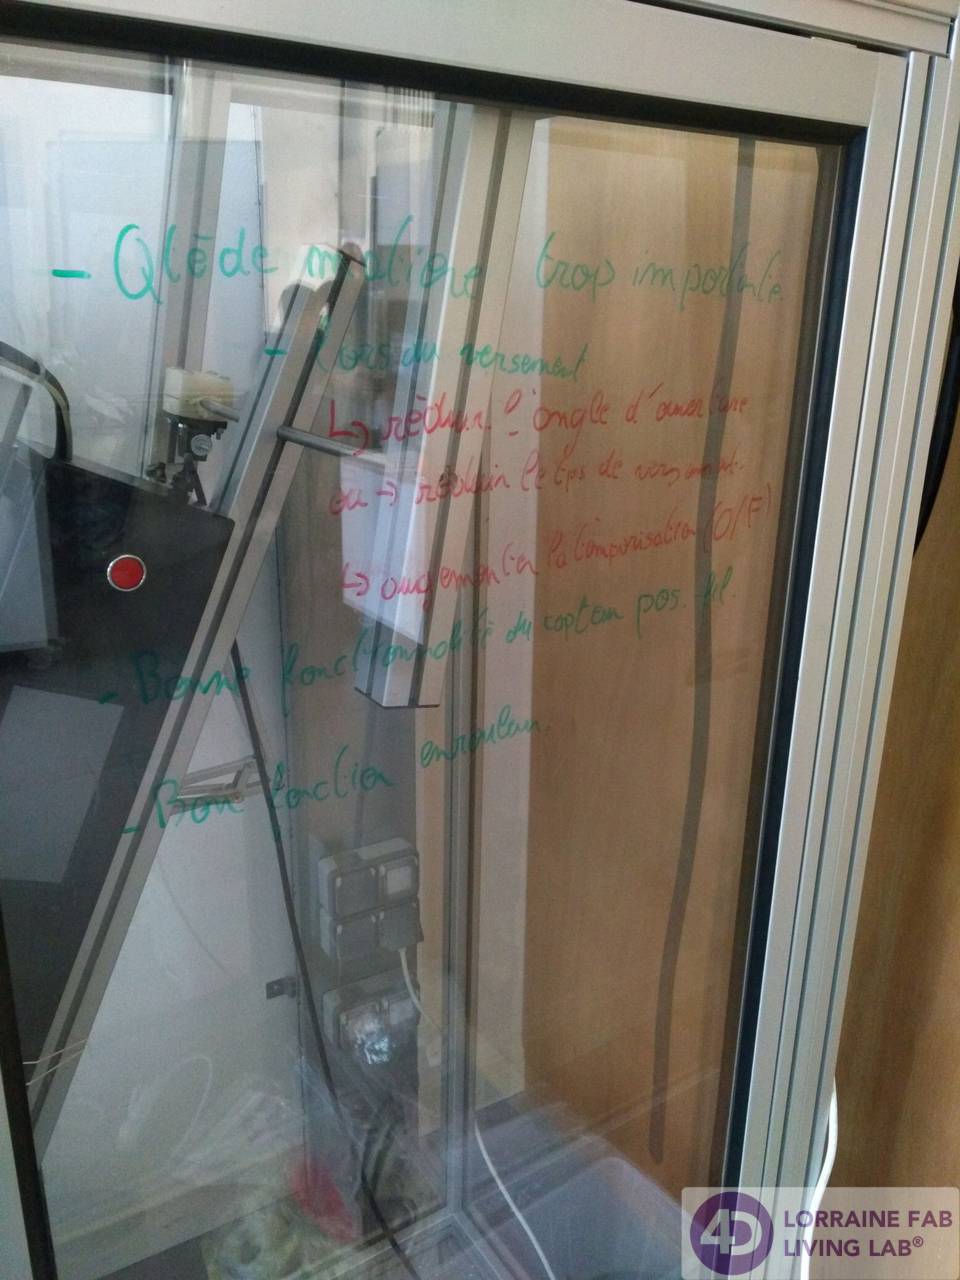 - Qté de matière trop importante
- lors du versement
↳ réduir l'angle d'ouverture
ou → réduire le tps de versement.
↳ augementer la temporisation (O/F)
- Bonne fonctionnalité du capteur pos. fil.
- Bon fonction enrouleur.
4D LORRAINE FAB
LIVING LAB®